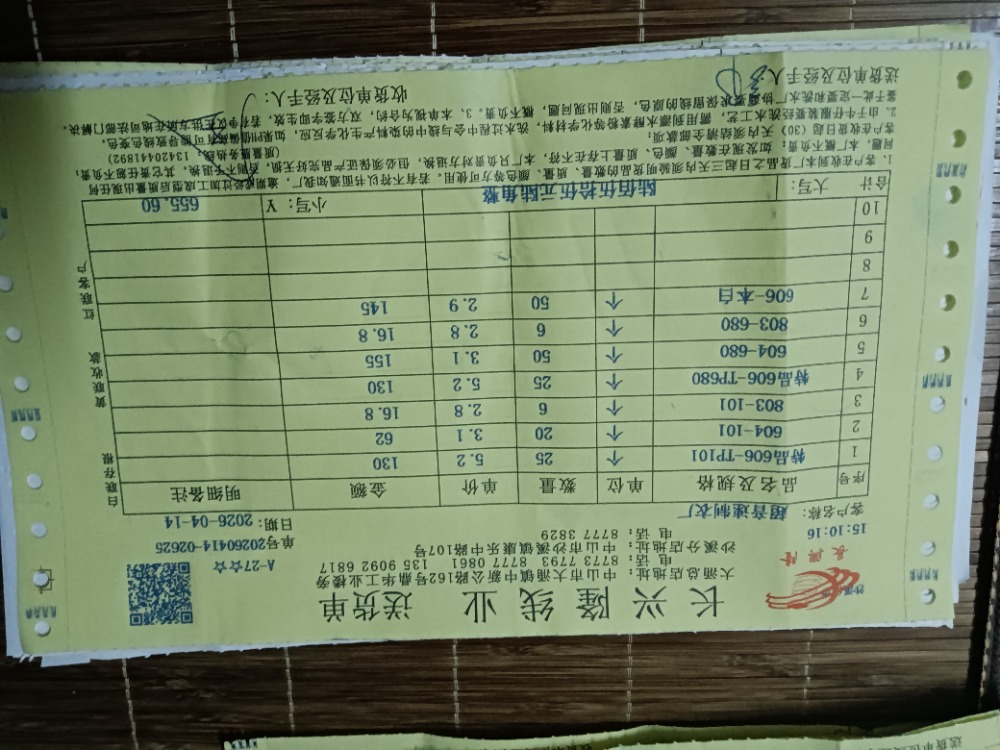 长兴隆线业 送货单
大涌总店地址：中山市大涌镇中新公路162号鼎华工业楼旁
电 话：8773 7793 8777 0861 135 9092 6817
沙溪分店地址：中山市沙溪镇康乐中路107号
电 话：8777 3829
A-27☆☆
单号20260414-02625
15:10:16
客户名称：超音速制衣厂
日期：2026-04-14
序号 品名及规格 单位 数量 单价 金额 明细备注
1 特品606-TP101 个 25 5.2 130
2 604-101 个 20 3.1 62
3 803-101 个 6 2.8 16.8
4 特品606-TP680 个 25 5.2 130
5 604-680 个 50 3.1 155
6 803-680 个 6 2.8 16.8
7 606-本白 个 50 2.9 145
8
9
10
合计 大写：陆佰伍拾伍元陆角整 小写：￥ 655.60
白联存根 黄联收款 红联客户
1. 客户在收到本厂货品之日起三天内须验明货品的数量、质量、颜色等方可使用。若有不符以书面通知我厂，逾期或经过加工成型后质量出现任何
问题，本厂概不负责；如发现在数量、颜色、质量上存在不符，本厂只负责对方退换，但必须保证产品完好无损，否则不予退换，其它责任概不负责；
客户在收货日起（30）天内须结清全部款项；
(质量服务热线：13420041892)
2. 由于牛仔服装要经洗水工艺，需用到漂水酵素粉等化学材料，洗水过程中会与线中的染料产生化学反应，如果PH值偏高有可能导致线色变色，
鉴于此一定要和洗水厂协商要求保留线的原色，否则出现问题，概不负责。3. 本单视为合约，双方签字即生效，若有争议在供方所在地司法部门解决。
送货单位及经手人：
收货单位及经手人：